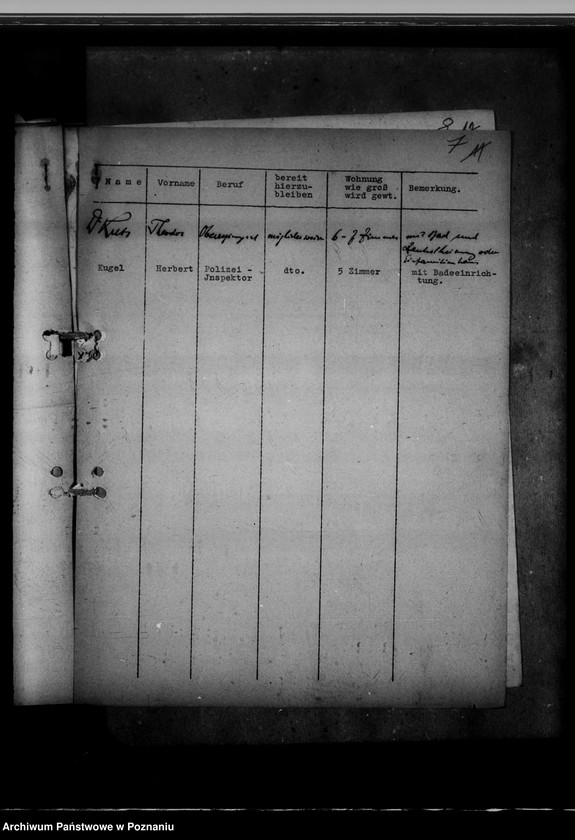 7
Name Vorname Beruf bereit hierzu- bleiben Wohnung wie groß wird gewt. Bemerkung.
Dr Krebs Theodor möglicherweise 6-7 Zimmer mit Bad und
oder
Einfamilienhaus
Kugel Herbert Polizei - Jnspektor dto. 5 Zimmer mit Badeeinrich-
tung.
Archiwum Państwowe w Poznaniu